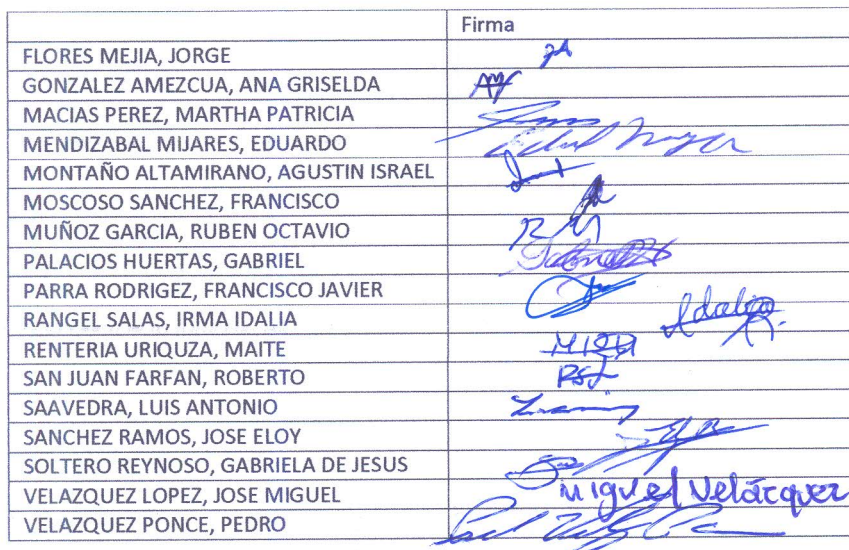 Firma
FLORES MEJIA, JORGE
GONZALEZ AMEZCUA, ANA GRISELDA
MACIAS PEREZ, MARTHA PATRICIA
MENDIZABAL MIJARES, EDUARDO
MONTAÑO ALTAMIRANO, AGUSTIN ISRAEL
MOSCOSO SANCHEZ, FRANCISCO
MUÑOZ GARCIA, RUBEN OCTAVIO
PALACIOS HUERTAS, GABRIEL
PARRA RODRIGEZ, FRANCISCO JAVIER
RANGEL SALAS, IRMA IDALIA Idalia R.
RENTERIA URIQUZA, MAITE
SAN JUAN FARFAN, ROBERTO
SAAVEDRA, LUIS ANTONIO
SANCHEZ RAMOS, JOSE ELOY
SOLTERO REYNOSO, GABRIELA DE JESUS
VELAZQUEZ LOPEZ, JOSE MIGUEL Miguel Velázquez
VELAZQUEZ PONCE, PEDRO